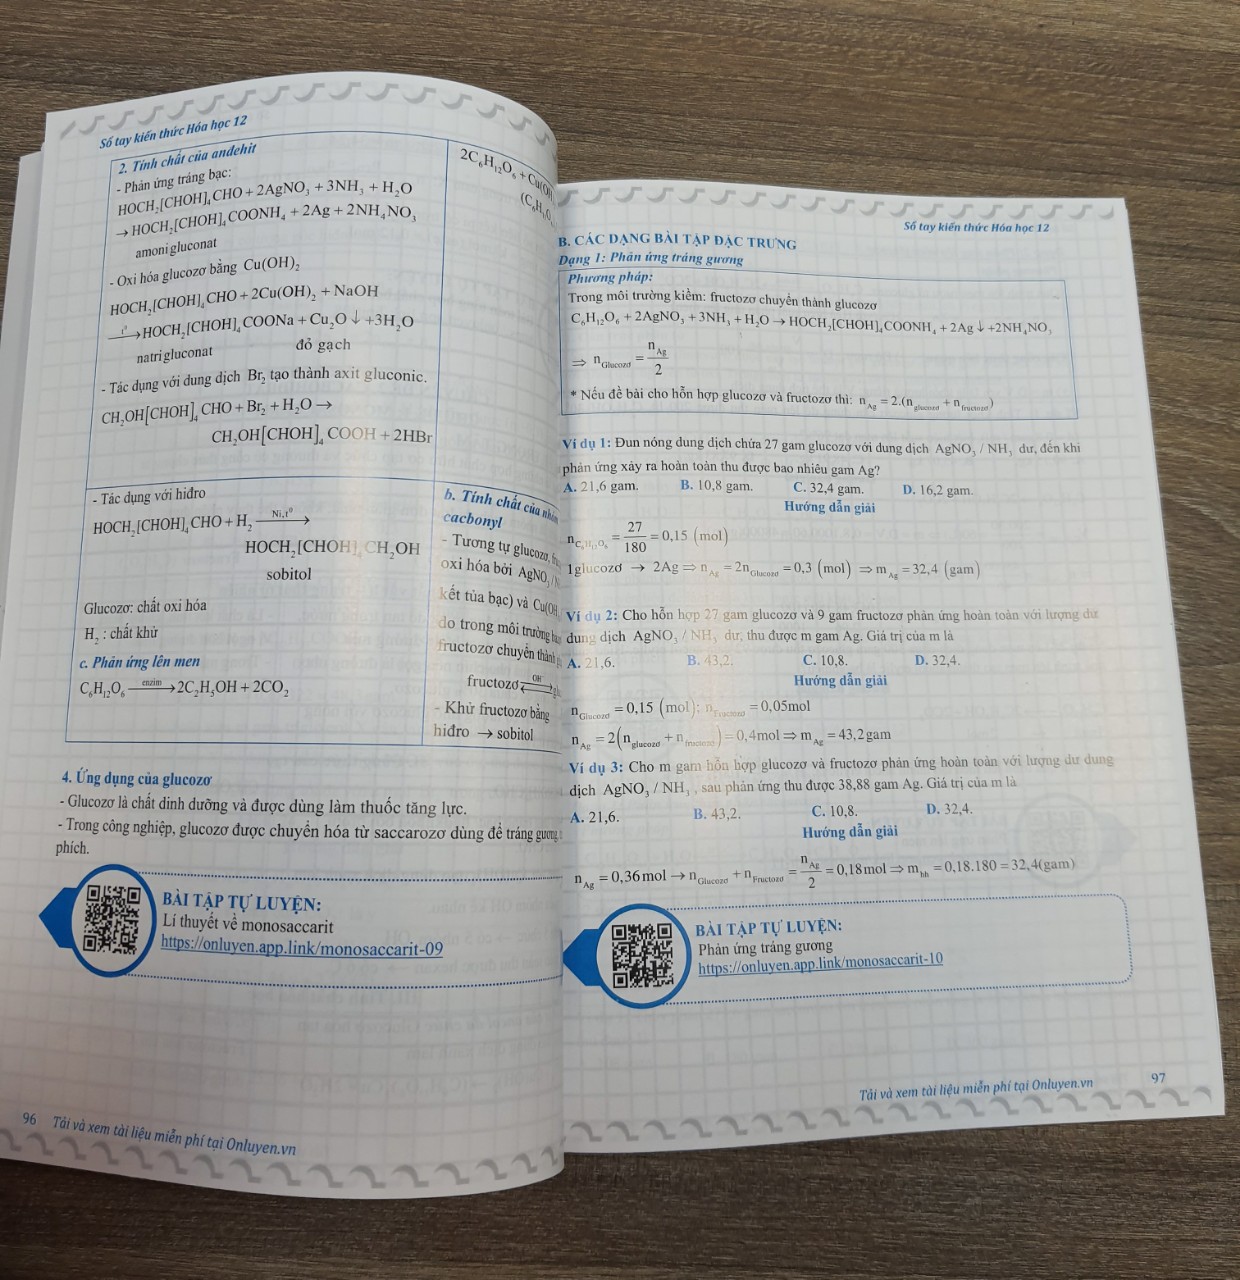 Sổ tay kiến thức Hóa học 12
2. Tính chất của anđehit
- Phản ứng tráng bạc:
HOCH₂[CHOH]₄CHO + 2AgNO₃ + 3NH₃ + H₂O
→ HOCH₂[CHOH]₄COONH₄ + 2Ag + 2NH₄NO₃
amoni gluconat
- Oxi hóa glucozơ bằng Cu(OH)₂
HOCH₂[CHOH]₄CHO + 2Cu(OH)₂ + NaOH
t⁰→ HOCH₂[CHOH]₄COONa + Cu₂O↓ +3H₂O
natri gluconat đỏ gạch
- Tác dụng với dung dịch Br₂ tạo thành axit gluconic.
CH₂OH[CHOH]₄CHO + Br₂ + H₂O →
CH₂OH[CHOH]₄COOH + 2HBr
2C₆H₁₂O₆ + Cu(OH
- Tác dụng với hiđro
HOCH₂[CHOH]₄CHO + H₂ Ni,t⁰→
HOCH₂[CHOH]₄CH₂OH
sobitol
Glucozơ: chất oxi hóa
H₂ : chất khử
c. Phản ứng lên men
C₆H₁₂O₆ enzim→ 2C₂H₅OH + 2CO₂
b. Tính chất của nhóm
cacbonyl
- Tương tự glucozơ,
oxi hóa bởi AgNO₃/
kết tủa bạc) và Cu(OH
do trong môi trường
fructozơ chuyển thành
fructozơ OH⁻⇌
- Khử fructozơ bằng
hiđro → sobitol
4. Ứng dụng của glucozơ
- Glucozơ là chất dinh dưỡng và được dùng làm thuốc tăng lực.
- Trong công nghiệp, glucozơ được chuyển hóa từ saccarozơ dùng để tráng gương,
phích.
BÀI TẬP TỰ LUYỆN:
Lí thuyết về monosaccarit
https://onluyen.app.link/monosaccarit-09
96 Tải và xem tài liệu miễn phí tại Onluyen.vn
Sổ tay kiến thức Hóa học 12
B. CÁC DẠNG BÀI TẬP ĐẶC TRƯNG
Dạng 1: Phản ứng tráng gương
Phương pháp:
Trong môi trường kiềm: fructozơ chuyển thành glucozơ
C₆H₁₂O₆ + 2AgNO₃ + 3NH₃ + H₂O → HOCH₂[CHOH]₄COONH₄ + 2Ag ↓ +2NH₄NO₃
⇒ n_Glucozơ = n_Ag / 2
* Nếu đề bài cho hỗn hợp glucozơ và fructozơ thì: n_Ag = 2.(n_glucozơ + n_fructozơ)
Ví dụ 1: Đun nóng dung dịch chứa 27 gam glucozơ với dung dịch AgNO₃ / NH₃ dư, đến khi
phản ứng xảy ra hoàn toàn thu được bao nhiêu gam Ag?
A. 21,6 gam. B. 10,8 gam. C. 32,4 gam. D. 16,2 gam.
Hướng dẫn giải
n_C₆H₁₂O₆ = 27/180 = 0,15 (mol)
1glucozơ → 2Ag ⇒ n_Ag = 2n_Glucozơ = 0,3 (mol) ⇒ m_Ag = 32,4 (gam)
Ví dụ 2: Cho hỗn hợp 27 gam glucozơ và 9 gam fructozơ phản ứng hoàn toàn với lượng dư
dung dịch AgNO₃ / NH₃ dư, thu được m gam Ag. Giá trị của m là
A. 21,6. B. 43,2. C. 10,8. D. 32,4.
Hướng dẫn giải
n_Glucozơ = 0,15 (mol); n_Fructozơ = 0,05mol
n_Ag = 2(n_glucozơ + n_fructozơ) = 0,4mol ⇒ m_Ag = 43,2gam
Ví dụ 3: Cho m gam hỗn hợp glucozơ và fructozơ phản ứng hoàn toàn với lượng dư dung
dịch AgNO₃ / NH₃ , sau phản ứng thu được 38,88 gam Ag. Giá trị của m là
A. 21,6. B. 43,2. C. 10,8. D. 32,4.
Hướng dẫn giải
n_Ag = 0,36mol → n_Glucozơ + n_Fructozơ = n_Ag / 2 = 0,18mol ⇒ m_hh = 0,18.180 = 32,4(gam)
BÀI TẬP TỰ LUYỆN:
Phản ứng tráng gương
https://onluyen.app.link/monosaccarit-10
Tải và xem tài liệu miễn phí tại Onluyen.vn 97